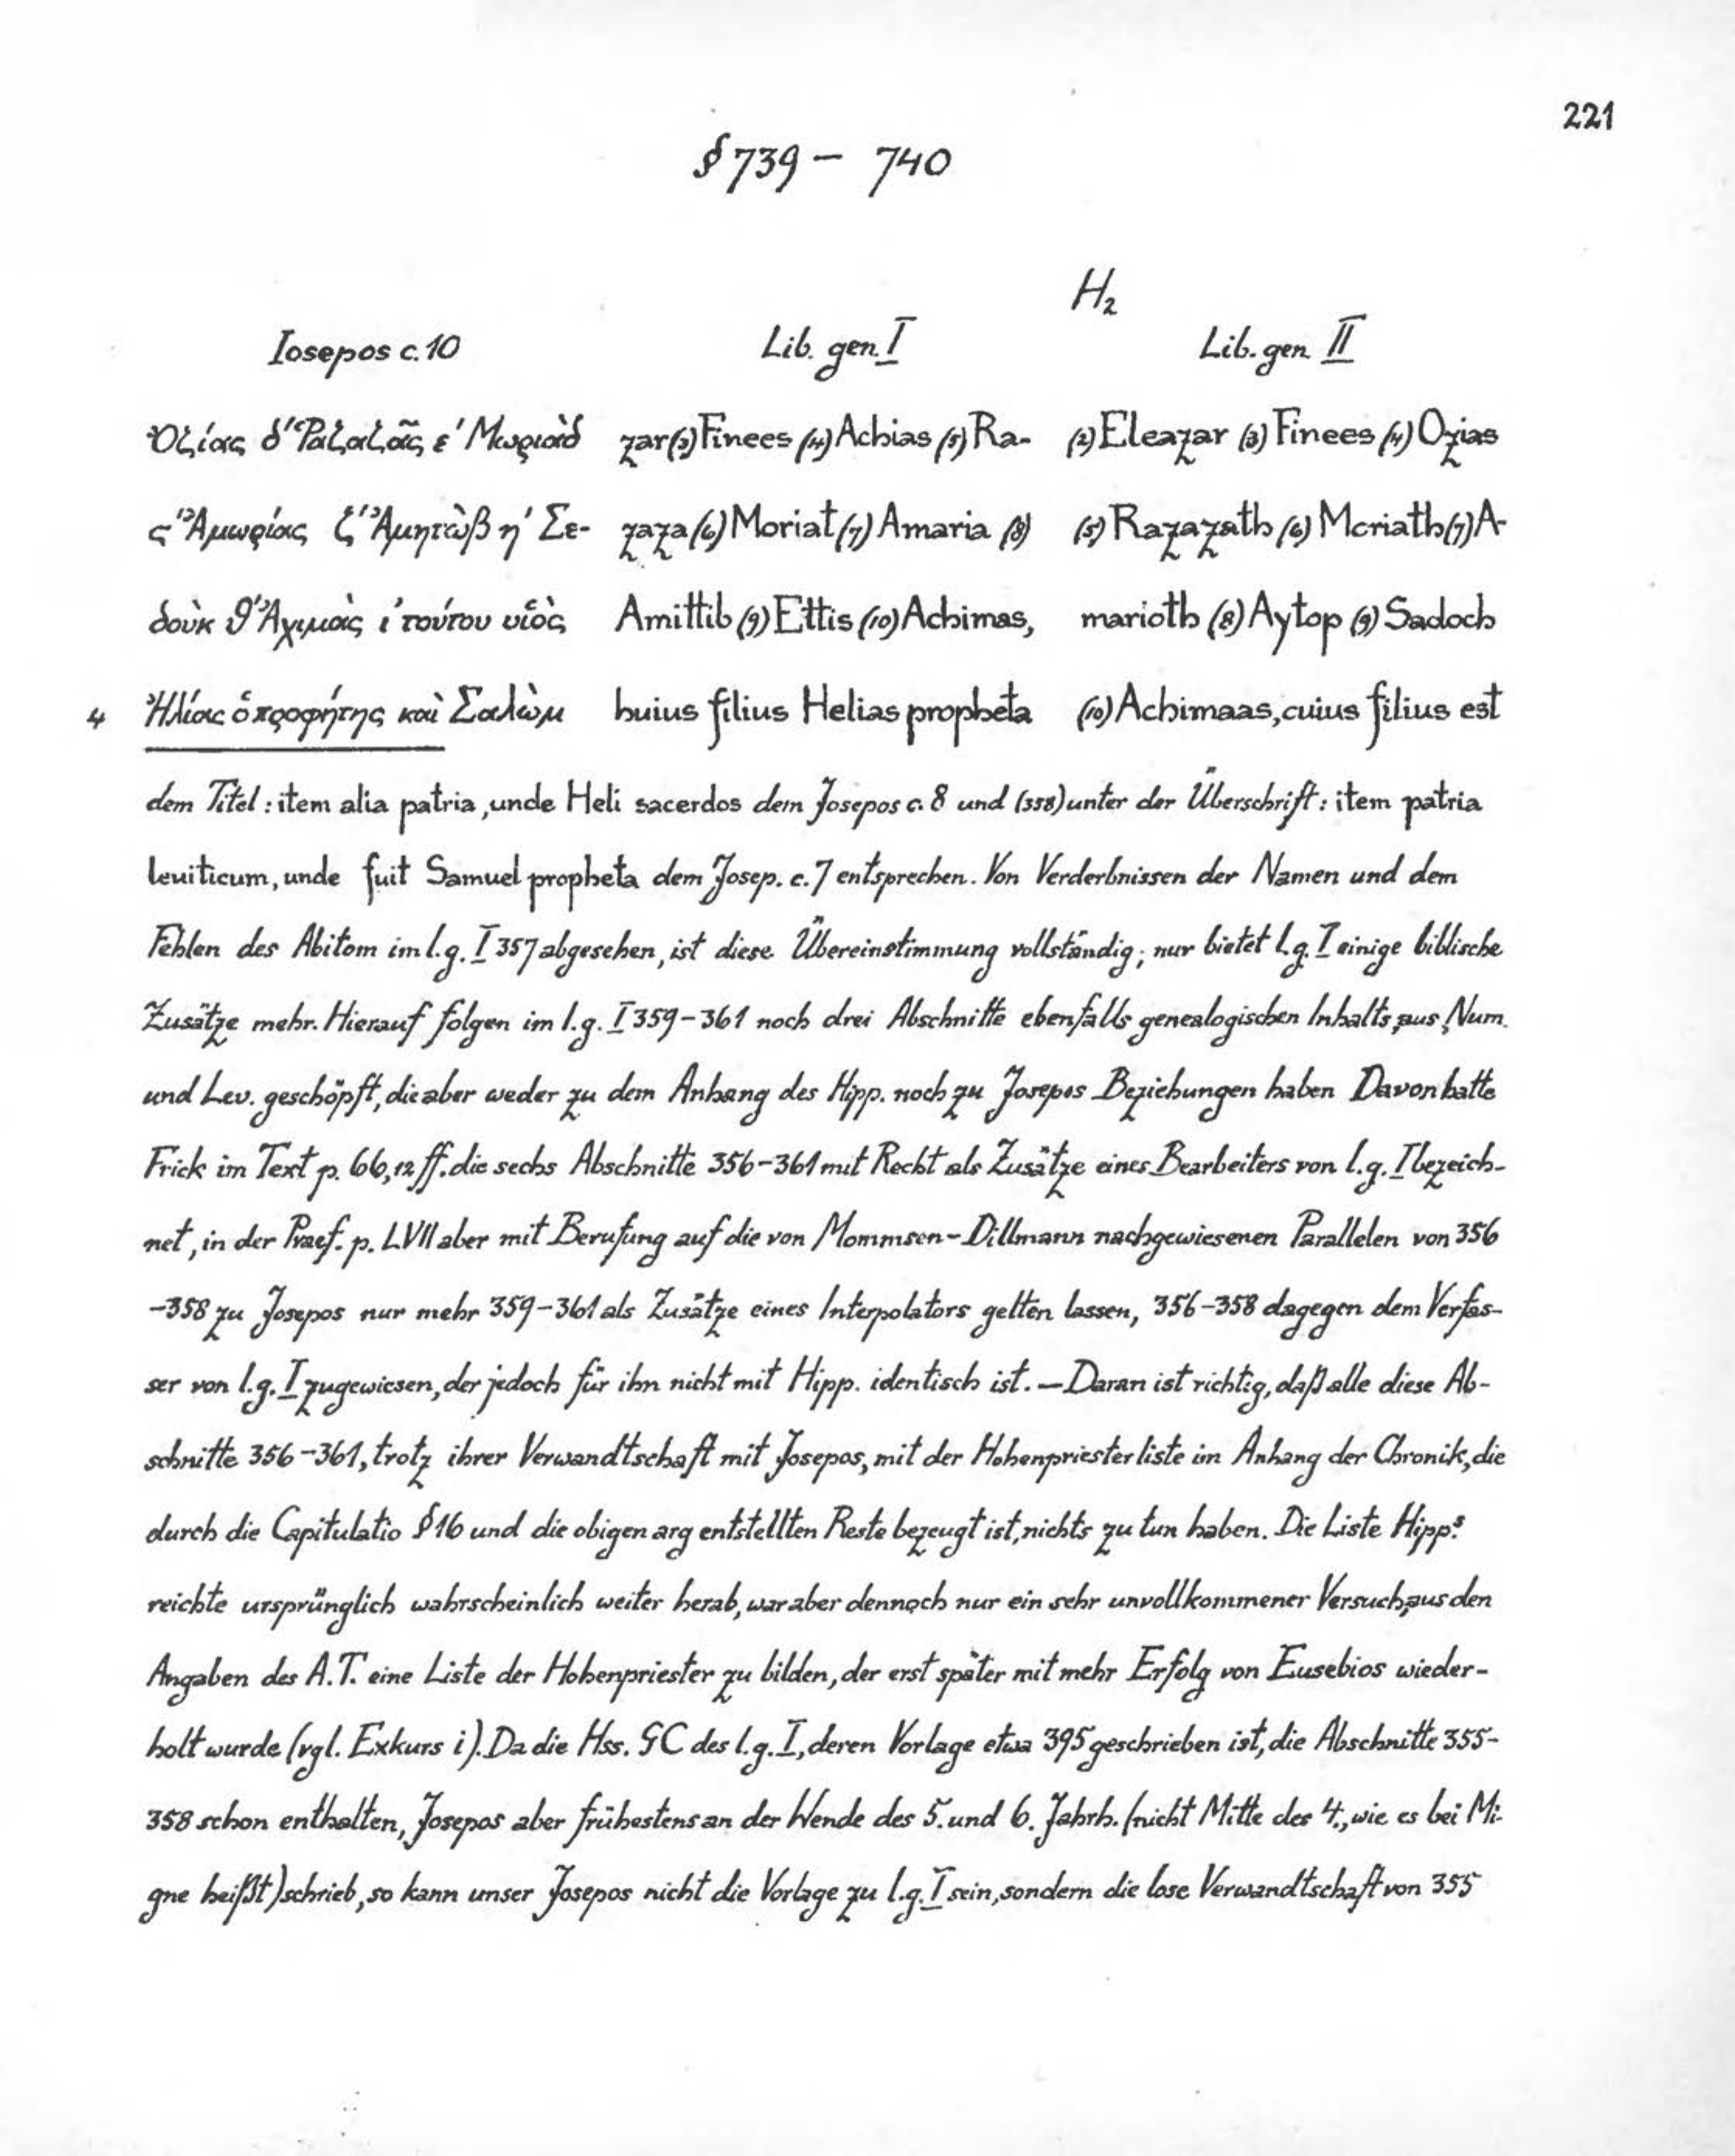 221
§ 739 – 740
H₂
Iosepos c. 10 Lib. gen. I Lib. gen. II
Ὀζίας δ' Ῥαζαζᾶς ε' Μωριὰδ zar (3) Finees (4) Achias (5) Ra- (2) Eleazar (3) Finees (4) Ozias
ς' Ἀμωρίας ζ' Ἀμητὼβ η' Σε- zaza (6) Moriat (7) Amaria (8) (5) Razazath (6) Moriath (7) A-
δοὺκ θ' Ἀχιμὰς ι' τούτου υἱὸς Amittib (9) Ettis (10) Achimas, marioth (8) Aytop (9) Sadoch
4 Ἠλίας ὁ προφήτης καὶ Σαλὼμ huius filius Helias propheta (10) Achimaas, cuius filius est
dem Titel: item alia patria, unde Heli sacerdos dem Josepos c. 8 und (358) unter der Überschrift: item patria
leuiticum, unde fuit Samuel propheta dem Josep. c. 7 entsprechen. Von Verderbnissen der Namen und dem
Fehlen des Abitom im l. g. I 357 abgesehen, ist diese Übereinstimmung vollständig; nur bietet l. g. I einige biblische
Zusätze mehr. Hierauf folgen im l. g. I 359–361 noch drei Abschnitte ebenfalls genealogischen Inhalts, aus Num.
und Lev. geschöpft, die aber weder zu dem Anhang des Hipp. noch zu Josepos Beziehungen haben Davon hatte
Frick im Text p. 66, 12 ff. die sechs Abschnitte 356–361 mit Recht als Zusätze eines Bearbeiters von l. g. I bezeich-
net, in der Praef. p. LVII aber mit Berufung auf die von Mommsen–Dillmann nachgewiesenen Parallelen von 356
–358 zu Josepos nur mehr 359–361 als Zusätze eines Interpolators gelten lassen, 356–358 dagegen dem Verfas-
ser von l. g. I zugewiesen, der jedoch für ihn nicht mit Hipp. identisch ist. — Daran ist richtig, daß alle diese Ab-
schnitte 356–361, trotz ihrer Verwandtschaft mit Josepos, mit der Hohenpriesterliste im Anhang der Chronik, die
durch die Capitulatio § 16 und die obigen arg entstellten Reste bezeugt ist, nichts zu tun haben. Die Liste Hipp.s
reichte ursprünglich wahrscheinlich weiter herab, war aber dennoch nur ein sehr unvollkommener Versuch, aus den
Angaben des A. T. eine Liste der Hohenpriester zu bilden, der erst später mit mehr Erfolg von Eusebios wieder-
holt wurde (vgl. Exkurs i). Da die Hss. GC des l. g. I, deren Vorlage etwa 395 geschrieben ist, die Abschnitte 355-
358 schon enthalten, Josepos aber frühestens an der Wende des 5. und 6. Jahrh. (nicht Mitte des 4., wie es bei Mi-
gne heißt) schrieb, so kann unser Josepos nicht die Vorlage zu l. g. I sein, sondern die lose Verwandtschaft von 355